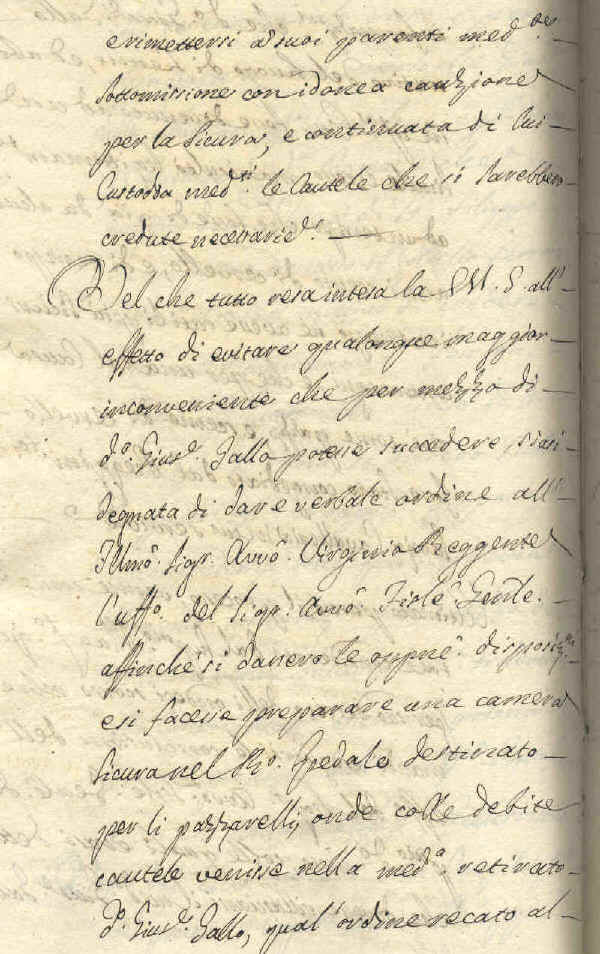 e rimettersi a' suoi parenti med.
Sottomissione con idonea cauzione
per la sicura, e continuata di lui
Custodia med.te le Cautele che si sarebbero
credute necessarie. —
Del che tutto resa intesa la M. S. all'
effetto di evitare qualonque maggior
inconveniente che per mezzo di
d.o Gius.e Gallo potesse succedere, siasi
degnata di dare verbale ordine all'
Illmo. Sigr. Avvo. Virginio Reggente
l'uffo. del Sigr. Avvo. Fisle. Genle.
affinchè si dassero le oppne. disposizni.
e si facesse preparare una camera
sicura nel Ro. Spedale destinato
per li pazzarelli, onde colle debite
cautele venisse nella med.a retirato
d.o Gius.e Gallo, qual'ordine recato al